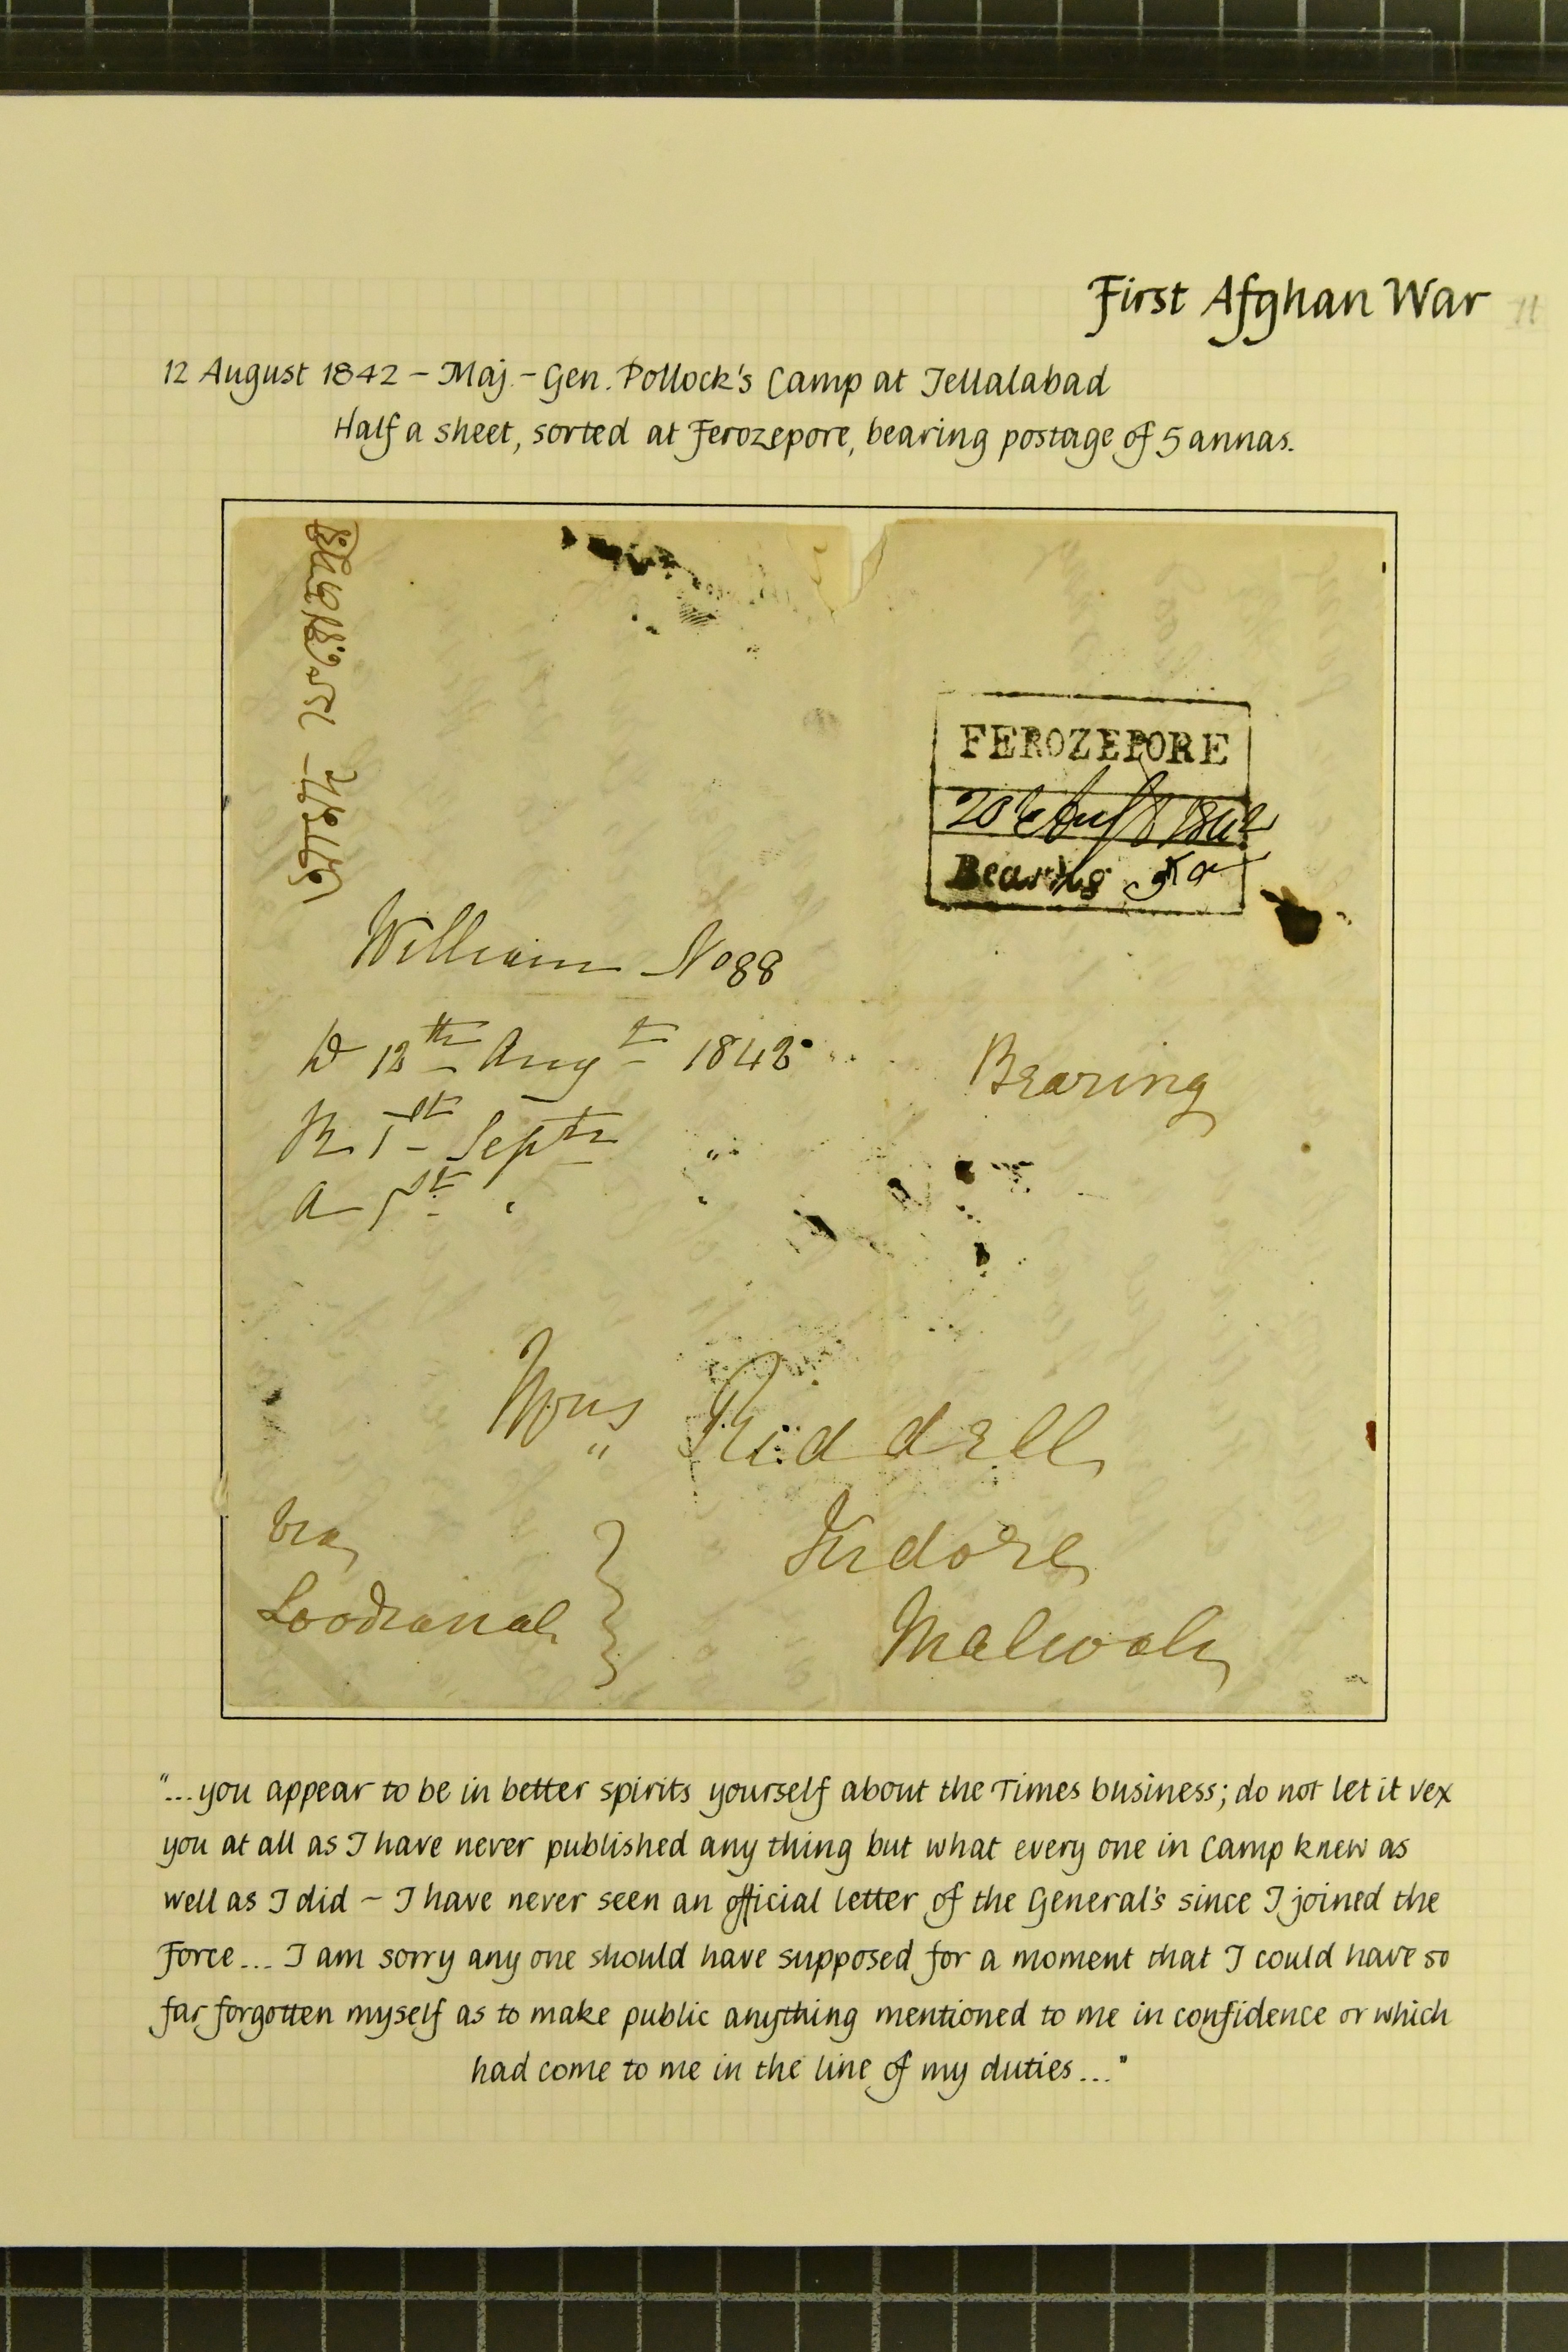 First Afghan War
11
12 August 1842 – Maj.-Gen. Pollock's Camp at Jellalabad
Half a sheet, sorted at Ferozepore, bearing postage of 5 annas.
FEROZEPORE
1842
Bearing 5 a
William No 88
D 12th Augt 1842
R 1st Septr "
A 1st " "
Bearing
Mrs Riddell
Indore
Malwah
Via
Loodianah
"...you appear to be in better spirits yourself about the Times business; do not let it vex
you at all as I have never published any thing but what every one in Camp knew as
well as I did – I have never seen an official letter of the General's since I joined the
Force... I am sorry any one should have supposed for a moment that I could have so
far forgotten myself as to make public anything mentioned to me in confidence or which
had come to me in the line of my duties..."